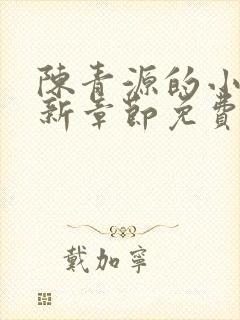 陳青源的小
新章節免費
戴加寧